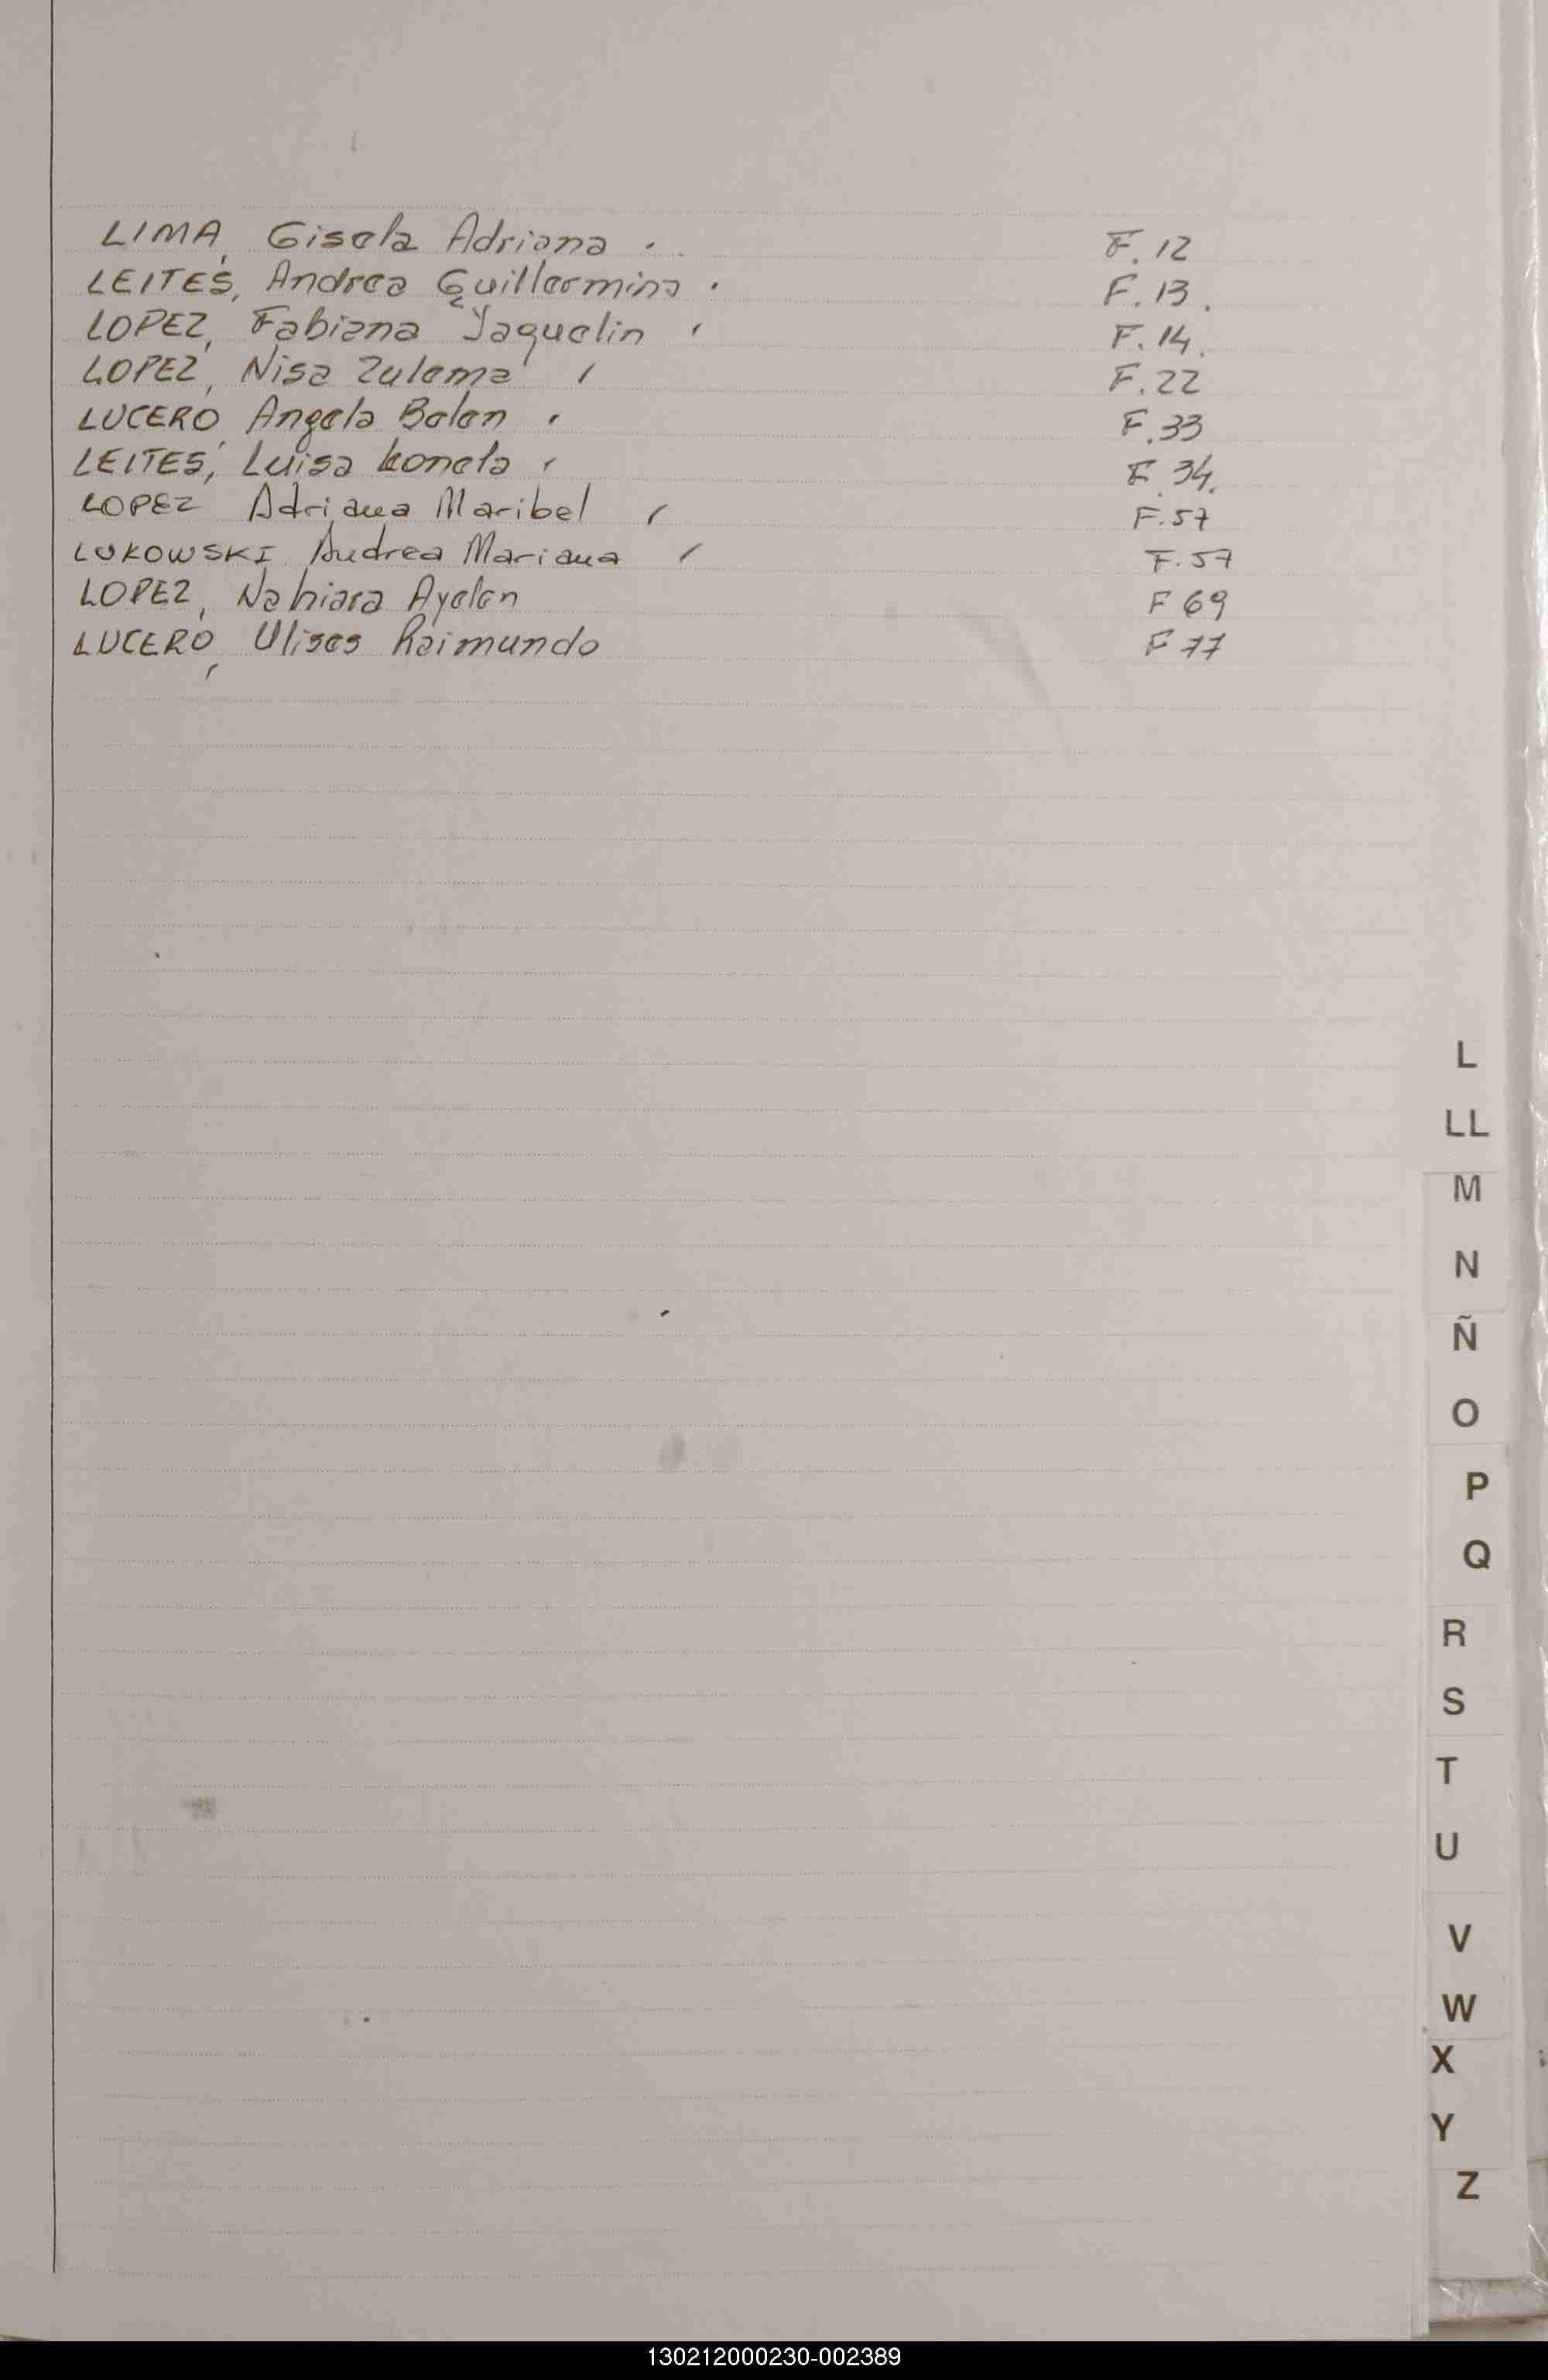 LIMA, Gisela Adriana . F. 12
LEITES, Andrea Guillermina . F. 13.
LOPEZ, Fabiana Yaquelin F. 14.
LOPEZ, Nisa Zulema F. 22
LUCERO, Angela Belen F. 33
LEITES, Luisa F. 34.
LOPEZ Adriana Maribel F. 57
LUKOWSKI Andrea Mariana F. 57
LOPEZ, Nahiara Ayelen F 69
LUCERO, Ulises Raimundo F 77
L
LL
M
N
Ñ
O
P
Q
R
S
T
U
V
W
X
Y
Z
130212000230-002389